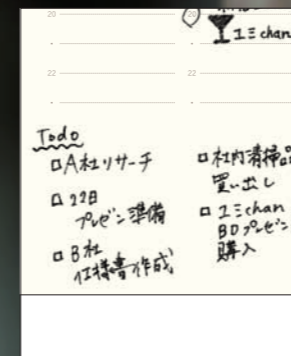 20
20
ユミchan
22
22
Todo
□A社リサーチ
□22日
プレゼン準備
□B社
仕様書作成
□社内清掃品
買い出し
□ユミchan
BDプレゼン
購入